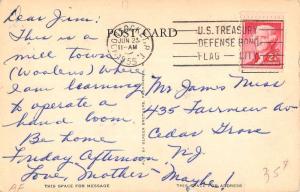 Dear Jim:
This is a
mill town
(Woolens) Where
I am learning
to operate
a hand loom.
Be home
Friday Afternoon,
Love, Mother - Maybe!
THIS SPACE FOR MESSAGE
POST CARD
JUN 23
11-AM
1955
U.S. TREASURY
DEFENSE BOND
FLAG
Mr James Muss
435 Fairview Av
Cedar Grove
N.J.
THIS SPACE FOR ADDRESS
35¢